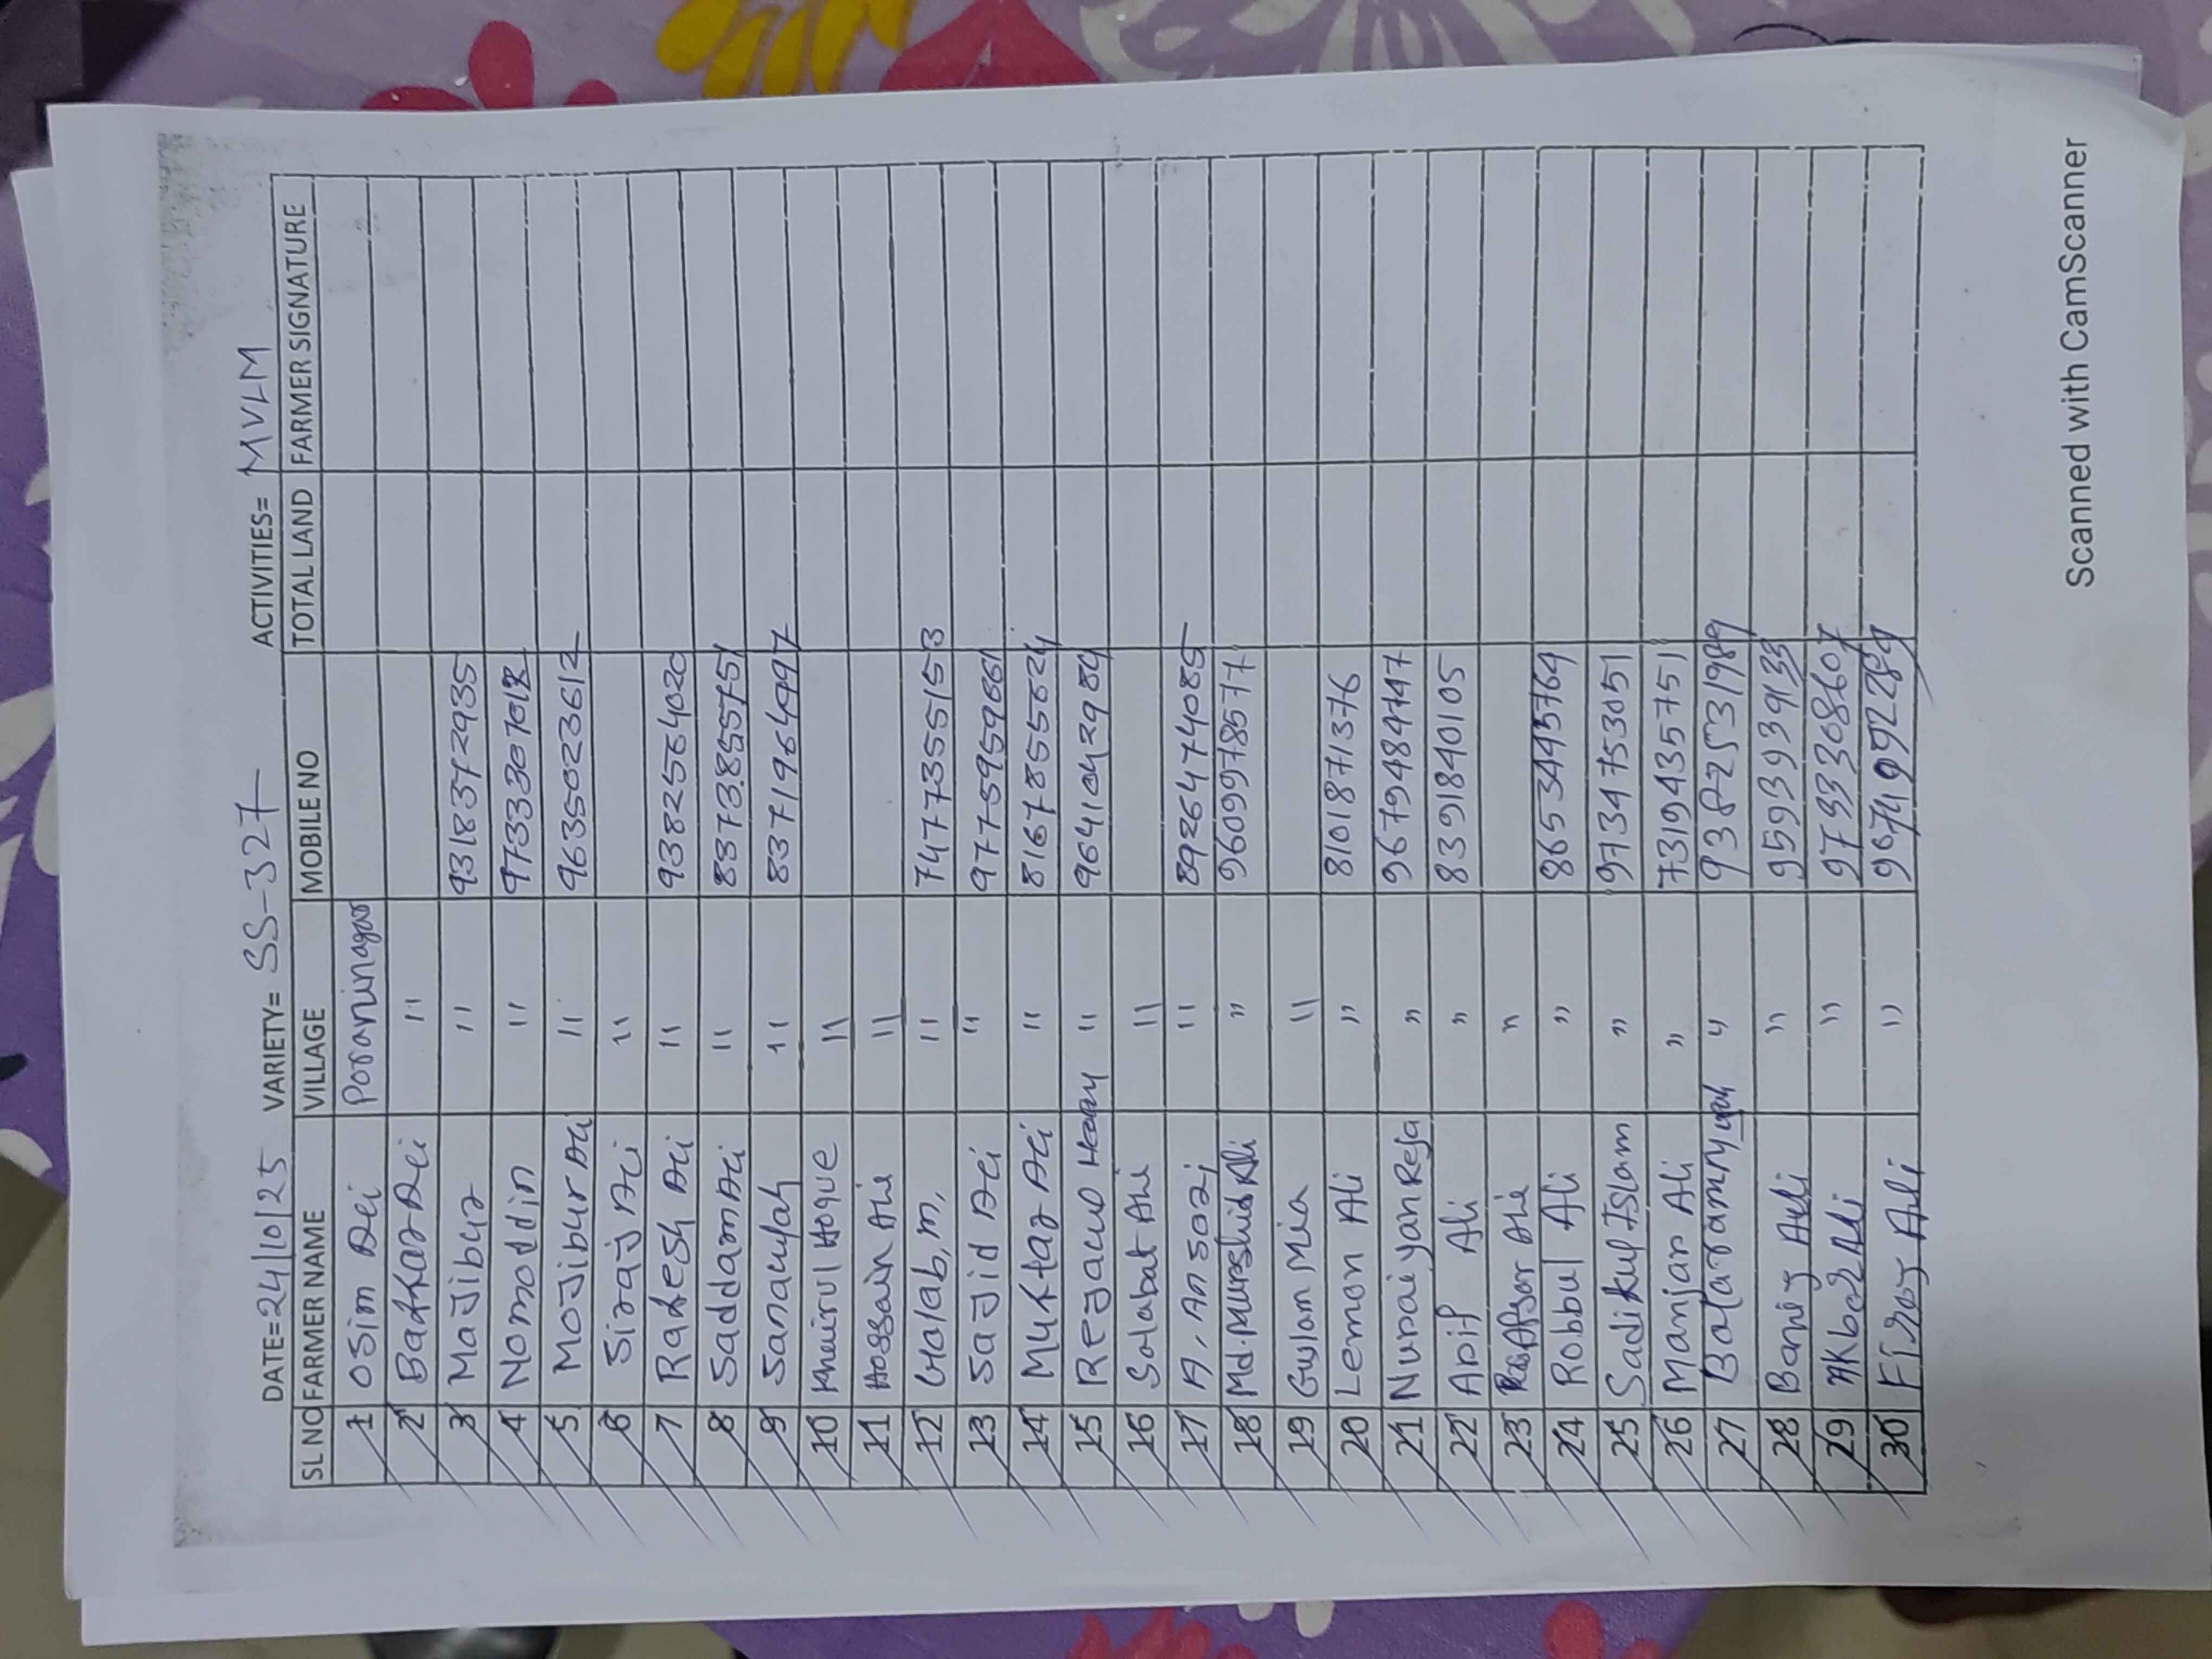 DATE=24/10/25 VARIETY= SS-327 ACTIVITIES= MVLM
SL NO FARMER NAME VILLAGE MOBILE NO TOTAL LAND FARMER SIGNATURE
1 Osim Ali Poraninagar
2 Ali "
3 Majibur " 9318372935
4 Nomoddin "
5 Mojibur Ali " 9635023612
6 Siraj Ali "
7 Rakesh Ali " 9382564020
8 Saddam Ali "
9 Sanaulah " 8371964997
10 Khairul Hoque "
11 Hossain Ali "
12 Golab, m, " 7477355153
13 Sajid Ali " 9775959661
14 Muktar Ali " 8167855624
15 "
16 Solabat Ali "
17 A, Ansari " 8926474085
18 Md. Murshid Ali " 9609978577
19 Gulam Mia "
20 Lemon Ali " 8101871376
21 "
22 Arif Ali " 8391840105
23 Afsar Ali "
24 Robbul Ali " 8653445764
25 Sadikul Islam " 9734753051
26 Manjar Ali " 7319435751
27 "
28 Ali " 9593939133
29 Akbar Ali " 9733308607
30 Firoj Ali "
Scanned with CamScanner